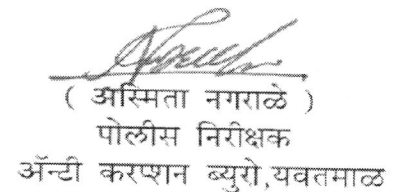 ( अस्मिता नगराळे )
पोलीस निरीक्षक
ॲन्टी करप्शन ब्युरो,यवतमाळ